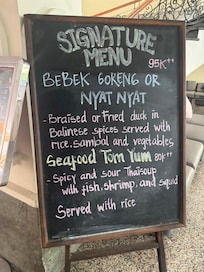 SIGNATURE
MENU
95K++
BEBEK GORENG OR
NYAT NYAT
- Braised or fried duck in
Balinese spices served with
rice, sambal and vegetables
Seafood Tom Yum 80K++
- Spicy and sour Thai soup
with fish, shrimp, and squid
Served with rice